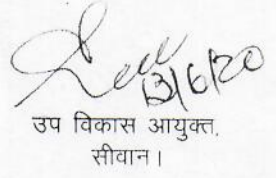 13/6/20
उप विकास आयुक्त,
सीवान।